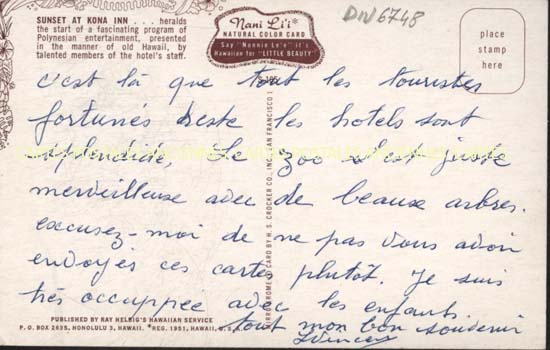 SUNSET AT KONA INN . . . heralds
the start of a fascinating program of
Polynesian entertainment, presented
in the manner of old Hawaii, by
talented members of the hotel's staff.
Nani Li'i*
NATURAL COLOR CARD
Say "Nannie Lee'e" it's
Hawaiian for "LITTLE BEAUTY"
DIV6748
place
stamp
here
c'est là que tout les touristes
fortunés reste les hotels sont
splendide, Le zoo est juste
merveilleuse avec de beaux arbres.
excusez-moi de ne pas vous avoir
envoyés ces cartes plutôt. Je suis
très occuppée avec les enfants.
tout mon bon souvenir
PUBLISHED BY RAY HELBIG'S HAWAIIAN SERVICE
P. O. BOX 2835, HONOLULU 3, HAWAII. *REG. 1951, HAWAII, U.S.
MIRRO-KROME CARD BY H. S. CROCKER CO., INC., SAN FRANCISCO 1